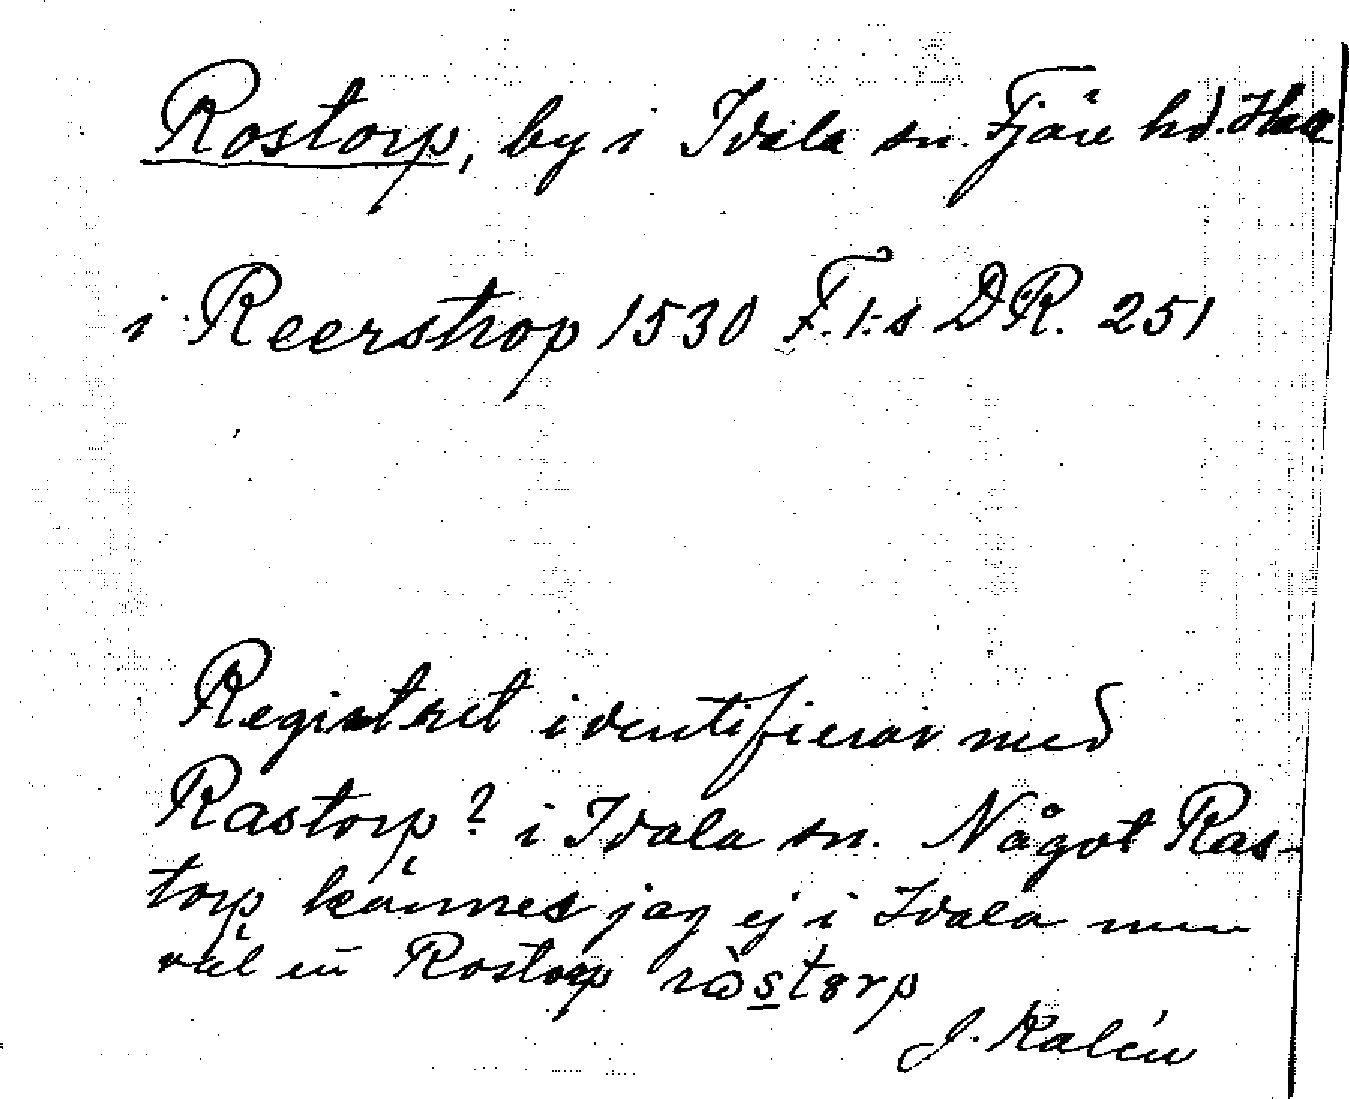 Rostorp, by i Idala sn. Fjäre hd. Hall
i Reerstrop 1530 F. I:s DR. 251
Registret identifierar med
Rastorp? i Idala sn. Något Ras-
torp kännes jag ej i Idala men
väl en Rostorp
J. Kalén